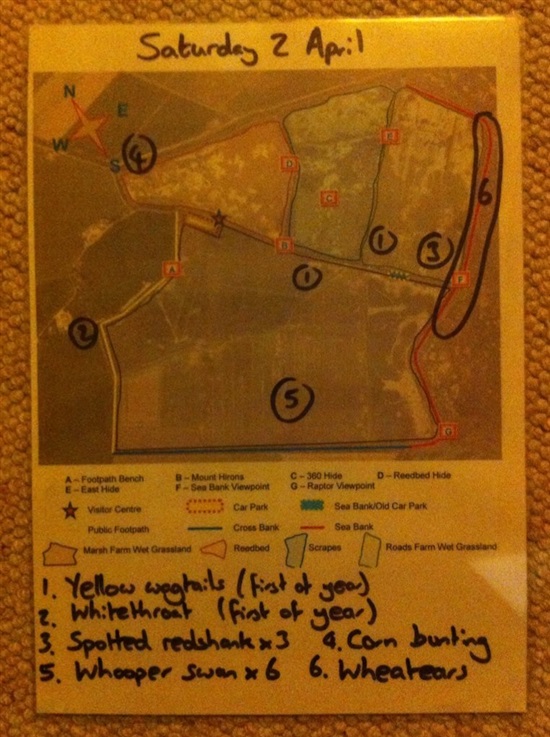 Saturday 2 April
N
E
W
S
4
E
6
D
C
1
3
B
A
1
F
2
5
G
A – Footpath Bench B – Mount Hirons C – 360 Hide D – Reedbed Hide
E – East Hide F – Sea Bank Viewpoint G – Raptor Viewpoint
Visitor Centre Car Park Sea Bank/Old Car Park
Public Footpath Cross Bank Sea Bank
Marsh Farm Wet Grassland Reedbed Scrapes Roads Farm Wet Grassland
1. Yellow wagtails (first of year)
2. Whitethroat (first of year)
3. Spotted redshank x 3 4. Corn bunting
5. Whooper swan x 6 6. Wheatears